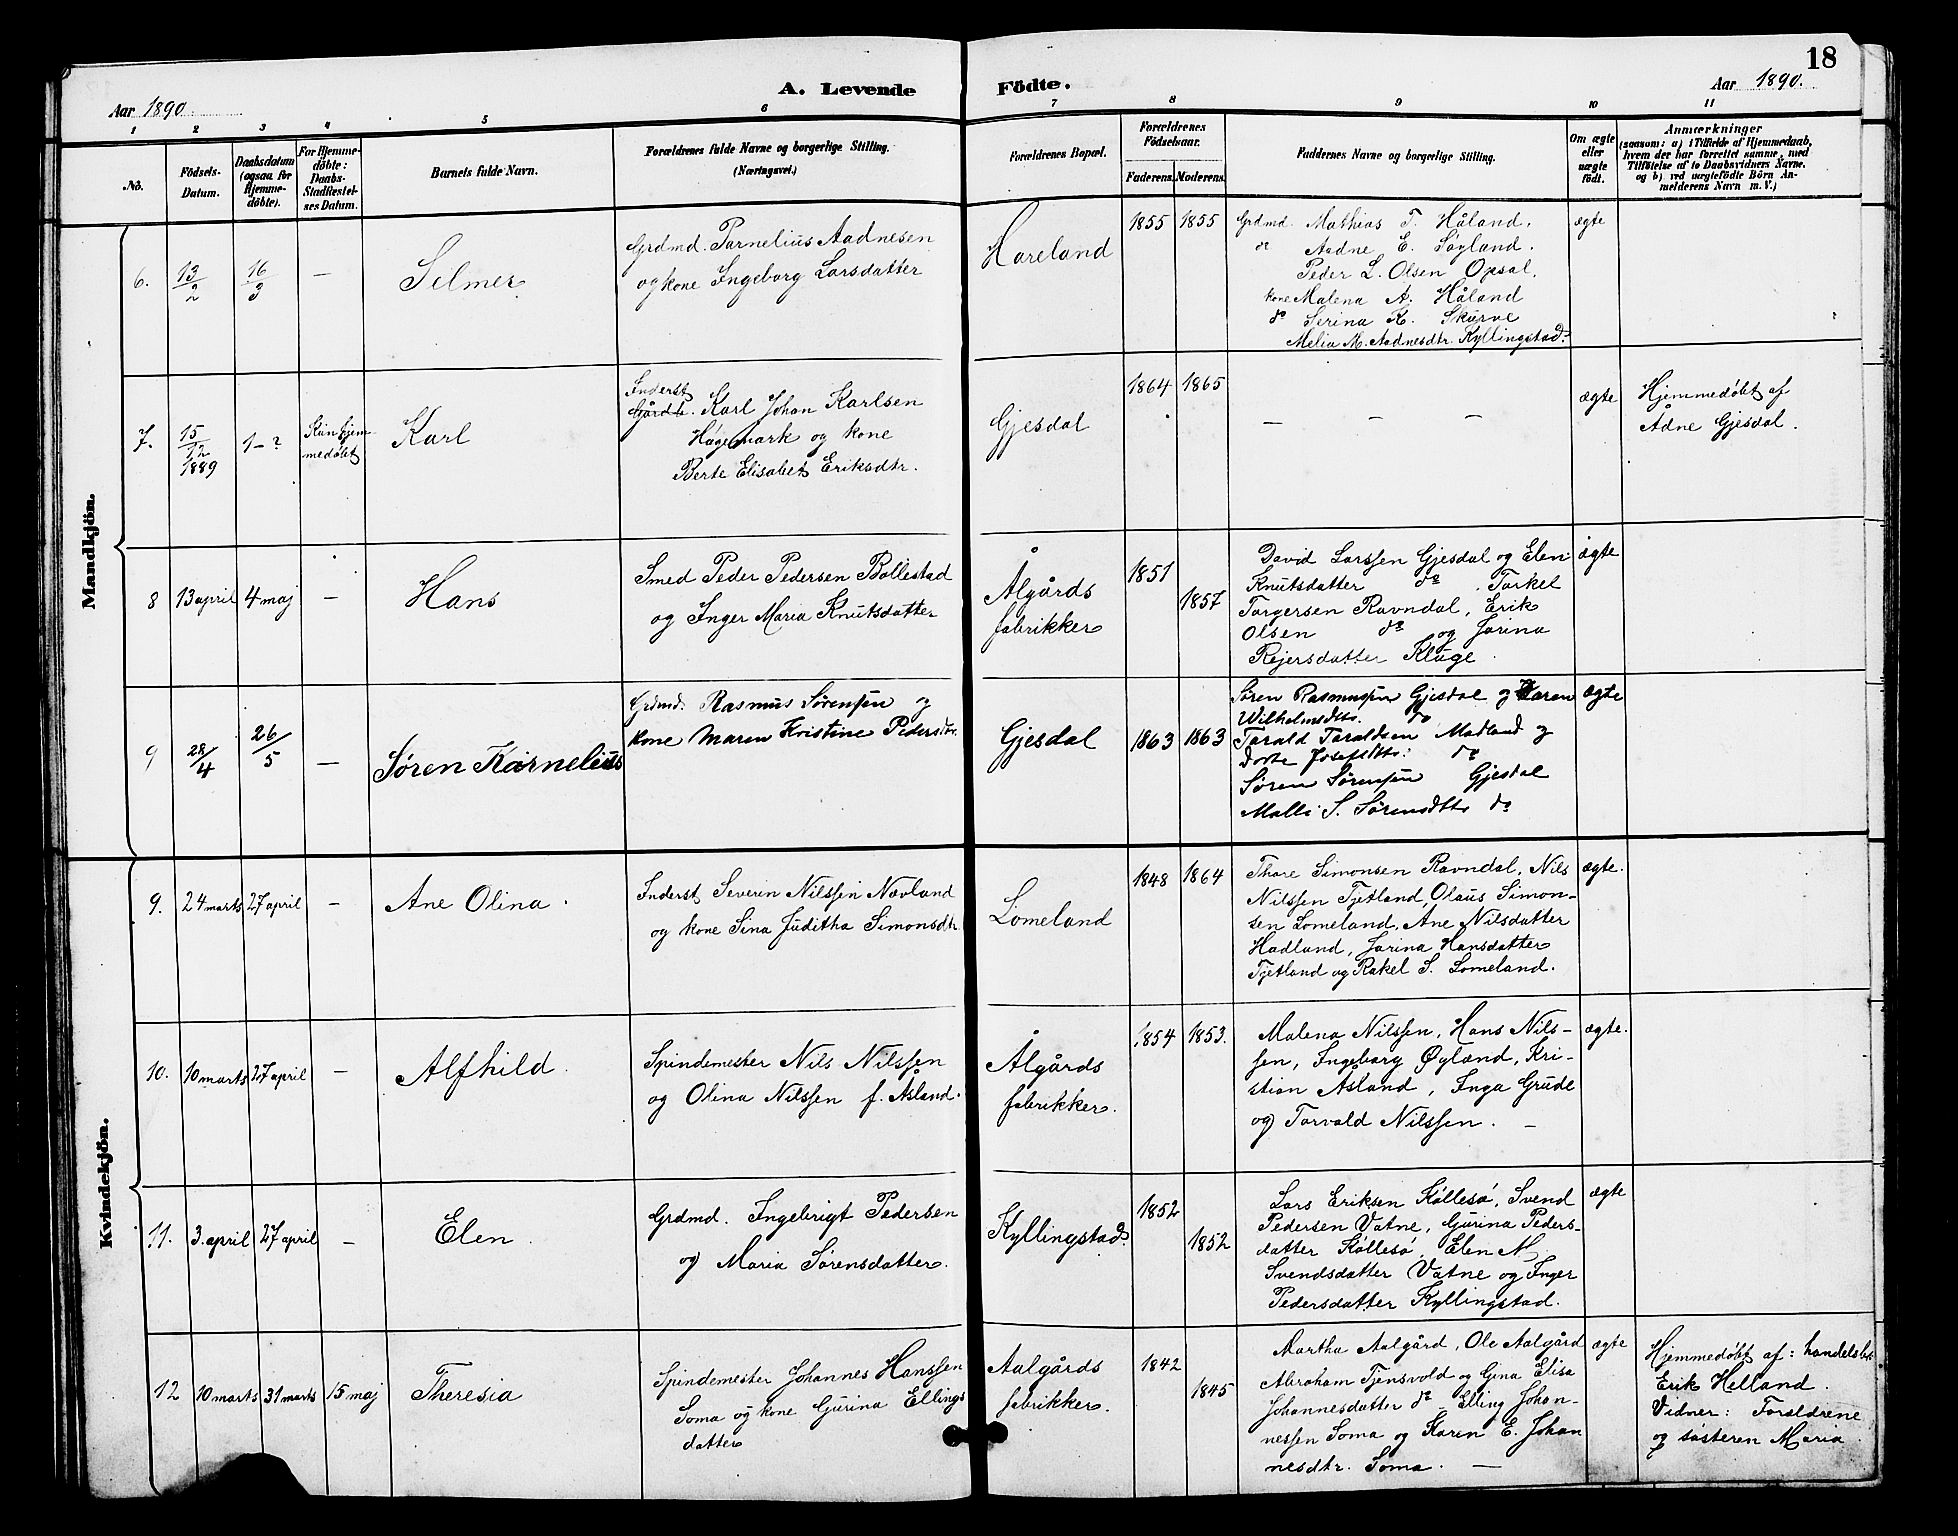 18
A. Levende Födte.
Aar 1890.
Aar 1890.
1 2 3 4 5 6 7 8 9 10 11
No.
Födsels-
Datum.
Daabsdatum
(ogsaa for
Hjemme-
döbte).
For Hjemme-
döbte:
Daabs-
Stadfæstel-
ses Datum.
Barnets fulde Navn.
Forældrenes fulde Navne og borgerlige Stilling.
(Næringsvei.)
Forældrenes Bopæl.
Forældrenes
Födselsaar.
Faderens. Moderens.
Faddernes Navne og borgerlige Stilling.
Om ægte
eller
uægte
født.
Anmærkninger
(saasom: a) i Tilfælde af Hjemmedaab,
hvem der har forrettet samme, med
Tilföielse af to Daabsvidners Navne.
og b) ved uægtefödte Börn An-
melderens Navn m. V.)
Mandkjön.
6. 13/2 16/3 — Selmer
Grdmd. Parnelius Aadnesen
og kone Ingeborg Larsdatter
Hareland
1855 1855
Grdmd. Mathias T. Håland.
do Aadne E. Søyland.
Peder L. Olsen Opsal.
kone Malena A. Håland
do Serina K. Skurve
Melia M. Aadnesdtr. Kyllingstad.
ægte
7. 15/12 1889 1-? Kun hjem-
medøbt
Karl
Inderst
Gårdb. Karl Johan Karlsen
Hagemark og kone
Berte Elisabet Eriksdtr.
Gjesdal
1864 1865
— — —
ægte
Hjemmedøbt af
Ådne Gjesdal.
8 13 april 4 maj — Hans
Smed Peder Pedersen Bollestad
og Inger Maria Knutsdatter
Ålgårds
fabrikker
1851
1857
David Larssen Gjesdal og Elen
Knutsdatter do. Torkel
Torgersen Ravndal, Erik
Olsen do og Jorina
Rejersdatter Kluge.
ægte
9 28/4 26/5 — Søren Kornelius
Grdmd. Rasmus Sørensen og
kone Maren Kristine Pedersdtr.
Gjesdal
1863 1863
Søren Rasmussen Gjesdal og Karen
Wilhelmsdtr. do
Tarald Taraldsen Madland og
Dorte Josefsdtr: do
Søren Sørensen Gjesdal
Malli S. Sørensdtr do
ægte
Kvindekjön.
9. 24 marts 27 april — Ane Olina.
Inderst Severin Nilssen Nævland
og kone Sina Juditha Simonsdtr.
Lomeland
1848 1864
Thore Simonsen Ravndal, Nils
Nilssen Tjetland, Olaus Simon-
sen Lomeland, Ane Nilsdatter
Hadland, Jorina Hansdatter
Tjetland og Rakel S. Lomeland.
ægte.
10. 10 marts 27 april — Alfhild.
Spindemester Nils Nilssen
og Olina Nilssen f. Åsland.
Ålgårds
fabrikker.
1854 1853.
Malena Nilssen, Hans Nils-
sen, Ingeborg Øyland, Kri-
stian Åsland, Inga Grude
og Torvald Nilssen. —
ægte.
11. 3. april 27 april — Elen.
Grdmd. Ingebrigt Pedersen
og Maria Sørensdatter.
Kyllingstad.
1852
1852
Lars Eriksen Køllesø, Svend
Pedersen Vatne, Gurina Peders-
datter Køllesø, Elen M.
Svendsdatter Vatne og Inger
Pedersdatter Kyllingstad.
ægte
12 10 marts 31 marts 15 maj Theresia
Spindemester Johannes Hanssen
Soma og kone Gurina Ellings
datter
Aalgårds
fabrikker.
1842
1845
Martha Aalgård, Ole Aalgård
Abraham Tjensvold og Gina Elisa
Johannesdatter do – Elling Johan-
nessen Soma og Karen E. Johan
nesdtr. Soma. —
ægte
Hjemmedøbt af: handelsbet.
Erik Helland.
Vidner: Forældrene
og søsteren Maria